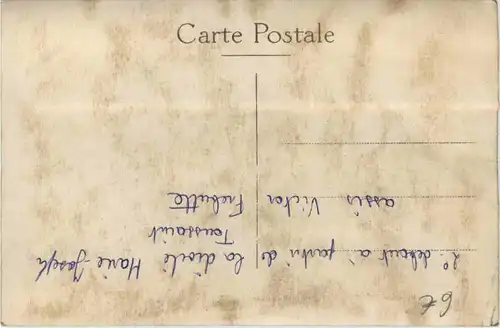 Carte Postale
2° debout à partir de la droite Marie-Joseph
Toussaint
assis Victor Frebutte
6€